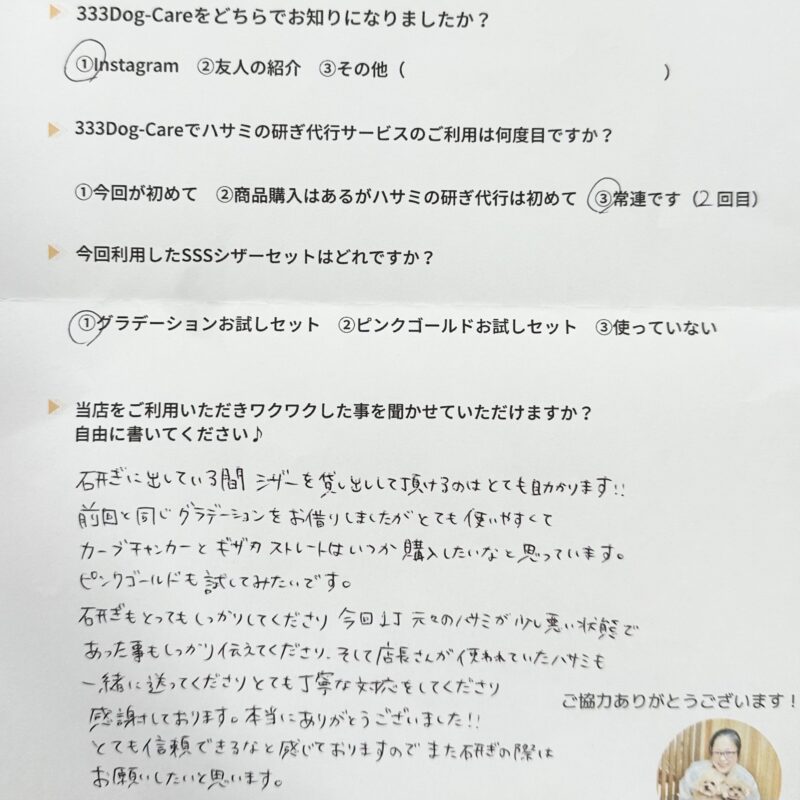 333Dog-Careをどちらでお知りになりましたか？
①Instagram ②友人の紹介 ③その他（ ）
333Dog-Careでハサミの研ぎ代行サービスのご利用は何度目ですか？
①今回が初めて ②商品購入はあるがハサミの研ぎ代行は初めて ③常連です（2回目）
今回利用したSSSシザーセットはどれですか？
①グラデーションお試しセット ②ピンクゴールドお試しセット ③使っていない
当店をご利用いただきワクワクした事を聞かせていただけますか？
自由に書いてください♪
研ぎに出している間 シザーを貸し出しして頂けるのはとても助かります!!
前回と同じグラデーションをお借りしましたがとても使いやすくて
カーブチャンカーとギザ刃ストレートはいつか購入したいなと思っています。
ピンクゴールドも試してみたいです。
研ぎもとってもしっかりしてくださり 今回1丁 元々のハサミが少し悪い状態で
あった事もしっかり伝えてくださり、そして店長さんが使われていたハサミも
一緒に送ってくださりとても丁寧な対応をしてくださり
感謝しております。本当にありがとうございました!!
とても信頼できるなと感じておりますのでまた研ぎの際は
お願いしたいと思います。
ご協力ありがとうございます！